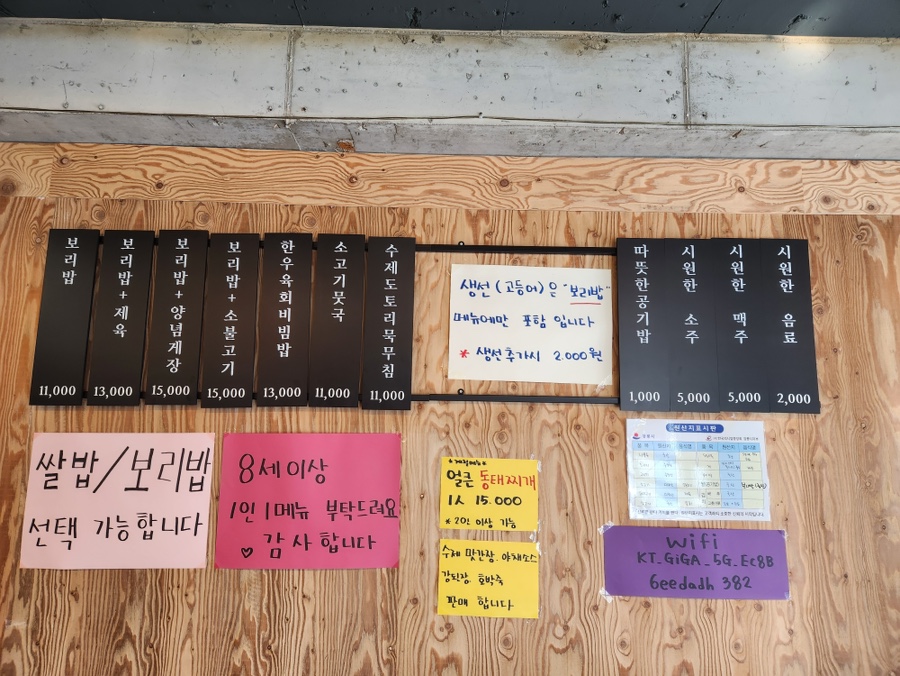 보리밥
11,000
보리밥+제육
13,000
보리밥+양념게장
15,000
보리밥+소불고기
15,000
한우육회비빔밥
13,000
소고기뭇국
11,000
수제도토리묵무침
11,000
생선(고등어)은 "보리밥"
메뉴에만 포함 입니다
* 생선추가시 2.000원
따뜻한공기밥
1,000
시원한 소주
5,000
시원한 맥주
5,000
시원한 음료
2,000
쌀밥/보리밥
선택 가능합니다
8세이상
1인 1메뉴 부탁드려요
♡ 감사합니다
얼큰 동태찌개
1人 15.000
*2인 이상 가능
수제 맛간장. 야채소스
강된장. 호박죽
판매 합니다
원산지표시판
wifi
KT_GiGA_5G_Ec8B
6eedadh 382